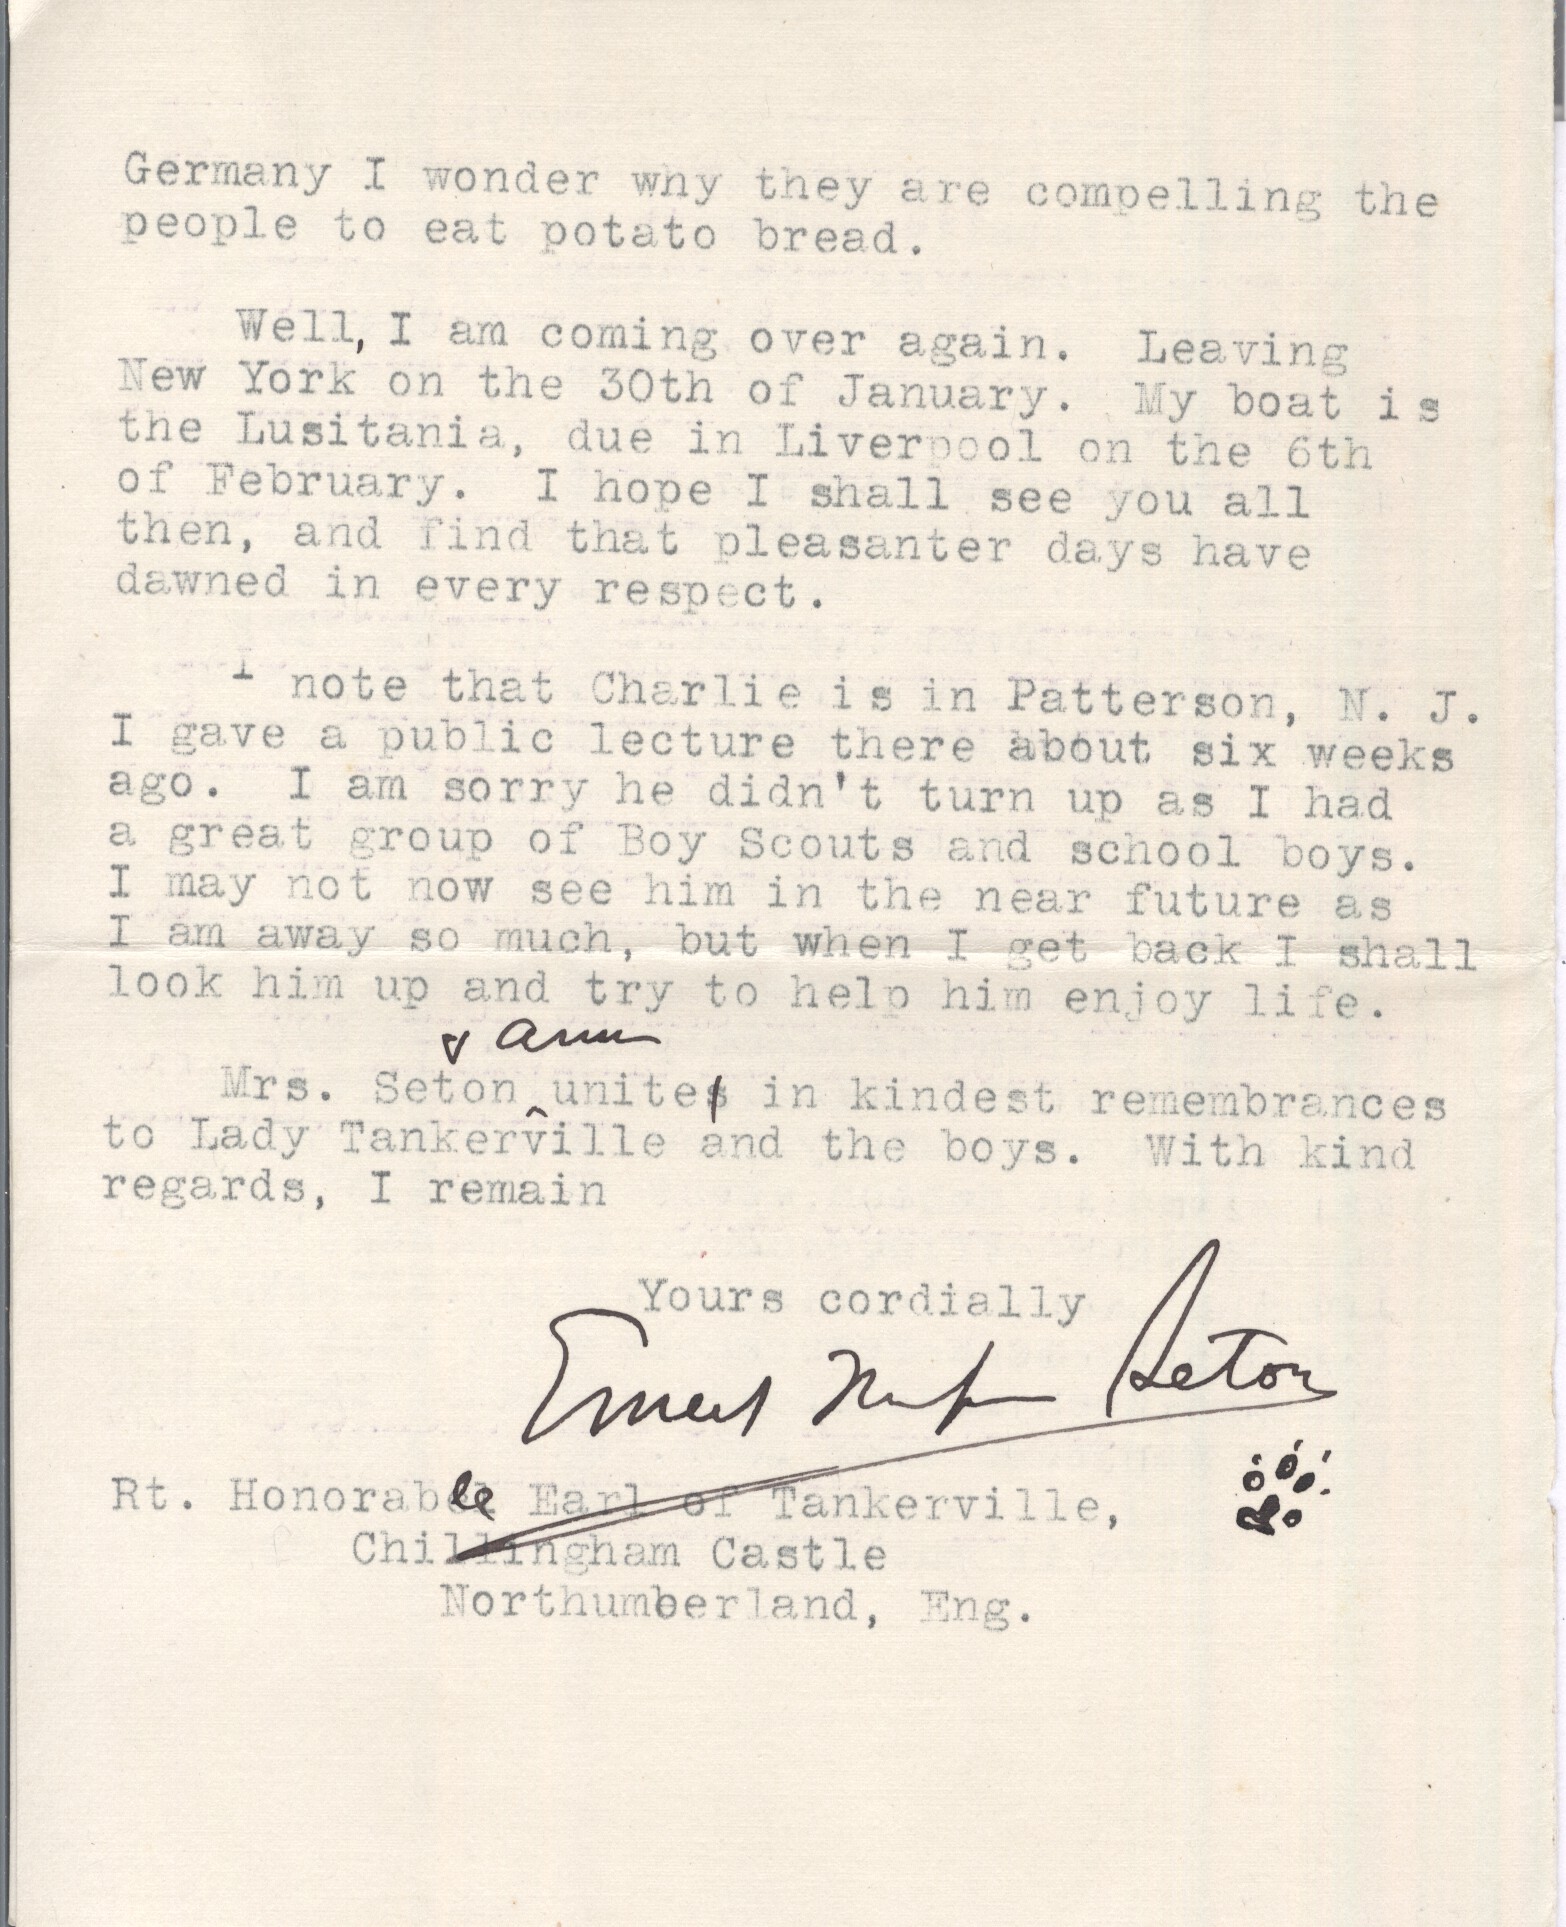 Germany I wonder why they are compelling the
people to eat potato bread.
Well, I am coming over again. Leaving
New York on the 30th of January. My boat is
the Lusitania, due in Liverpool on the 6th
of February. I hope I shall see you all
then, and find that pleasanter days have
dawned in every respect.
I note that Charlie is in Patterson, N. J.
I gave a public lecture there about six weeks
ago. I am sorry he didn't turn up as I had
a great group of Boy Scouts and school boys.
I may not now see him in the near future as
I am away so much, but when I get back I shall
look him up and try to help him enjoy life.
& Ann
Mrs. Seton ^ unite in kindest remembrances
to Lady Tankerville and the boys. With kind
regards, I remain
Yours cordially
Ernest Thompson Seton
Rt. Honorable Earl of Tankerville,
Chillingham Castle
Northumberland, Eng.